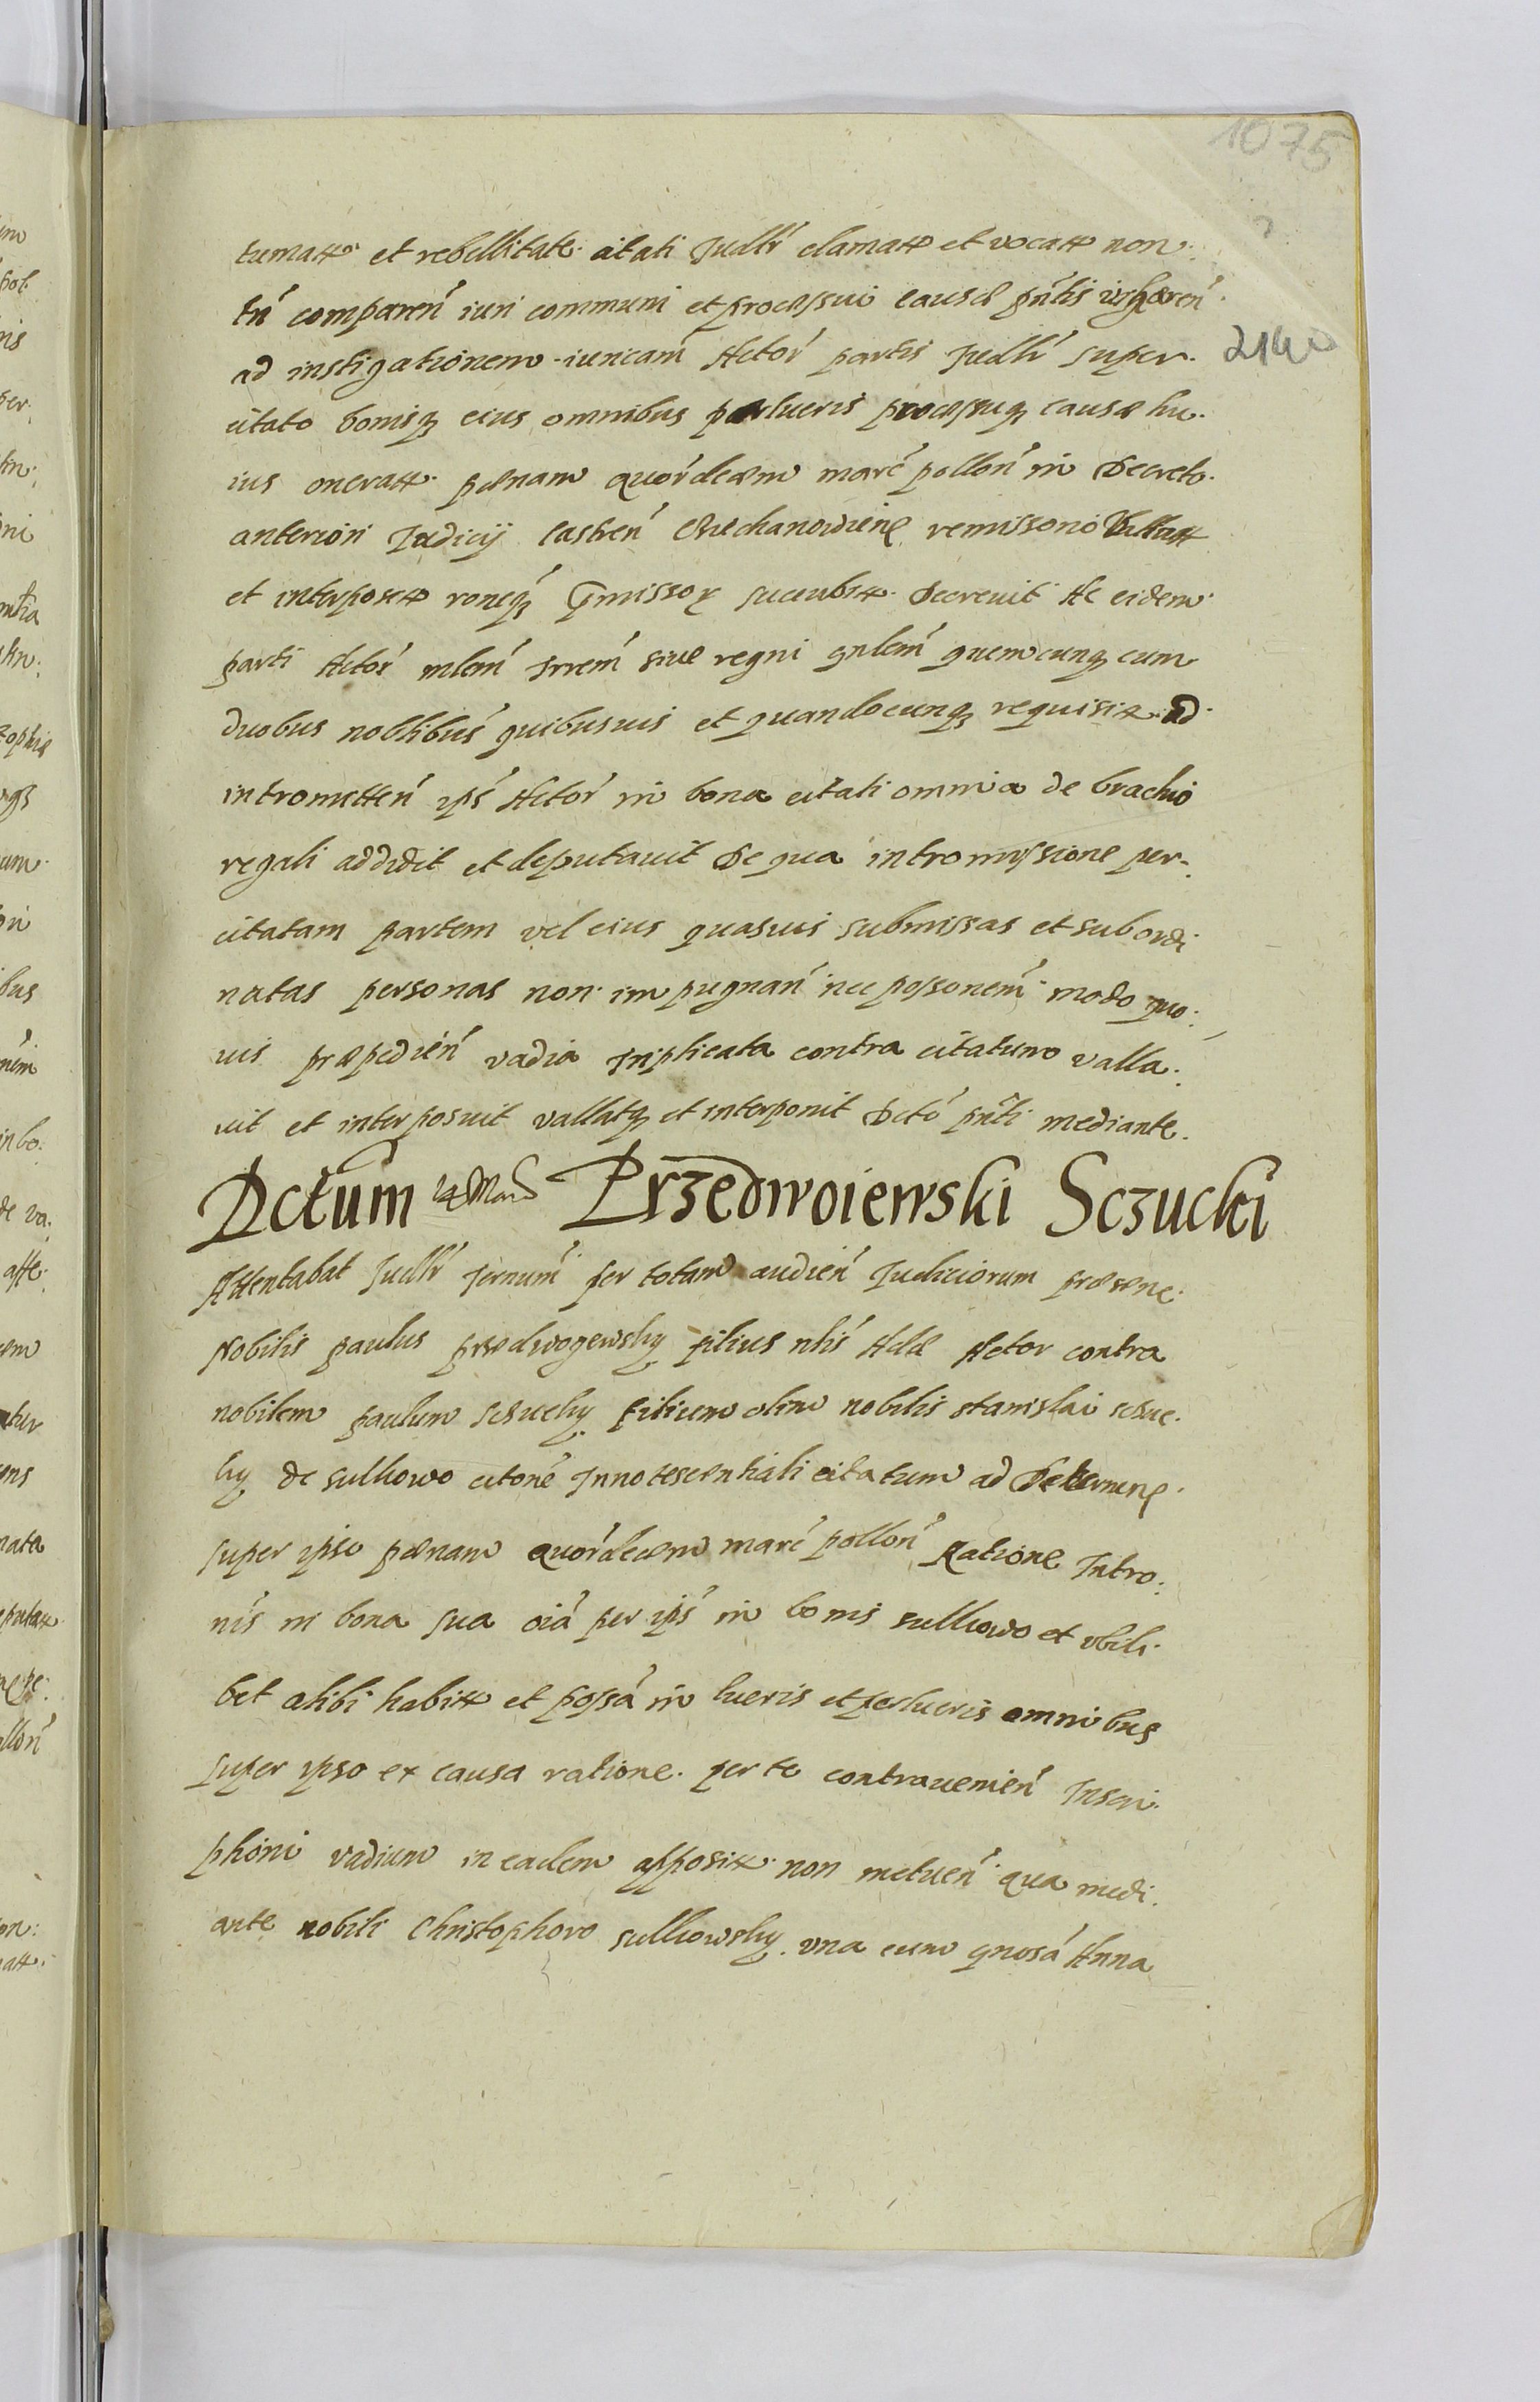 1075
tumatt et rebellitate citati Judlr clamatt et vocatt non
tn comparen iuri communi et processui causæ pntis inhæren
ad instigationem iunicam Actor partis Judlr super
2140
citato bonisq eius omnibus perlucris processuq causæ hu
ius oneratt pænam quordecem marc pollon in Decreto
anteriori Judicij Castren remissorio
et interposit roneq succubitt Decrevit Ac eidem
parti Actor mlem siue regni gnlem quemcunq cum
duobus noblibus quibusuis et quandocunq requisitt ad
intromitten ips Actor in bona citati omnia de brachio
regali addidit et deputauit De qua intromissione per
citatam partem vel eius quasuis submissas et subordi
natas personas non impugnan nec possonem modo quo
uis præpedien vadia triplicata contra citatum valla
uit et interposuit vallatq et interponit Dcto pnti mediante
Dctum Przedwoiewski Sczucki
Attentabat Judlr Ternum per totam audien Judiciorum præsene
Nobilis paulus przedwogewsky filius nlis Actor contra
nobilem paulum sczucky filium olim nobilis stanislai sczuc
ky de sulkowo citone Innotescentiali citatum ad
super ipso pænam quordecem marc pollon Ratione Intro
nis in bona sua oia per ips in bonis sulkowo et vbili
bet alibi habitt et possa in lucris et perlucris omnibus
super ipso ex causa ratione per te contrauenien Inscri
ptioni vadium in eadem appositt non metuen qua medi
ante nobili Christophoro sulkowsky vna cum gnosa Anna